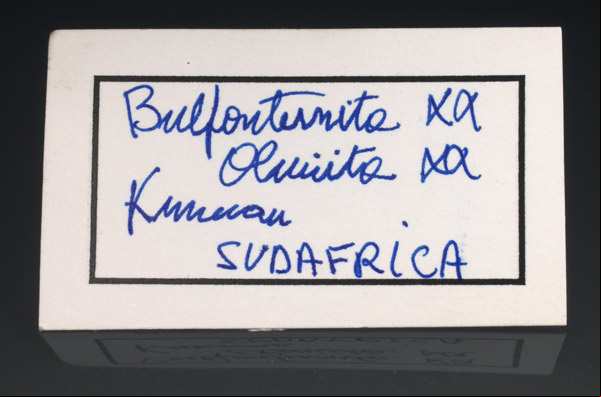 Bulfonternita XX
Olmiita XX
Kuruman
SUDAFRICA